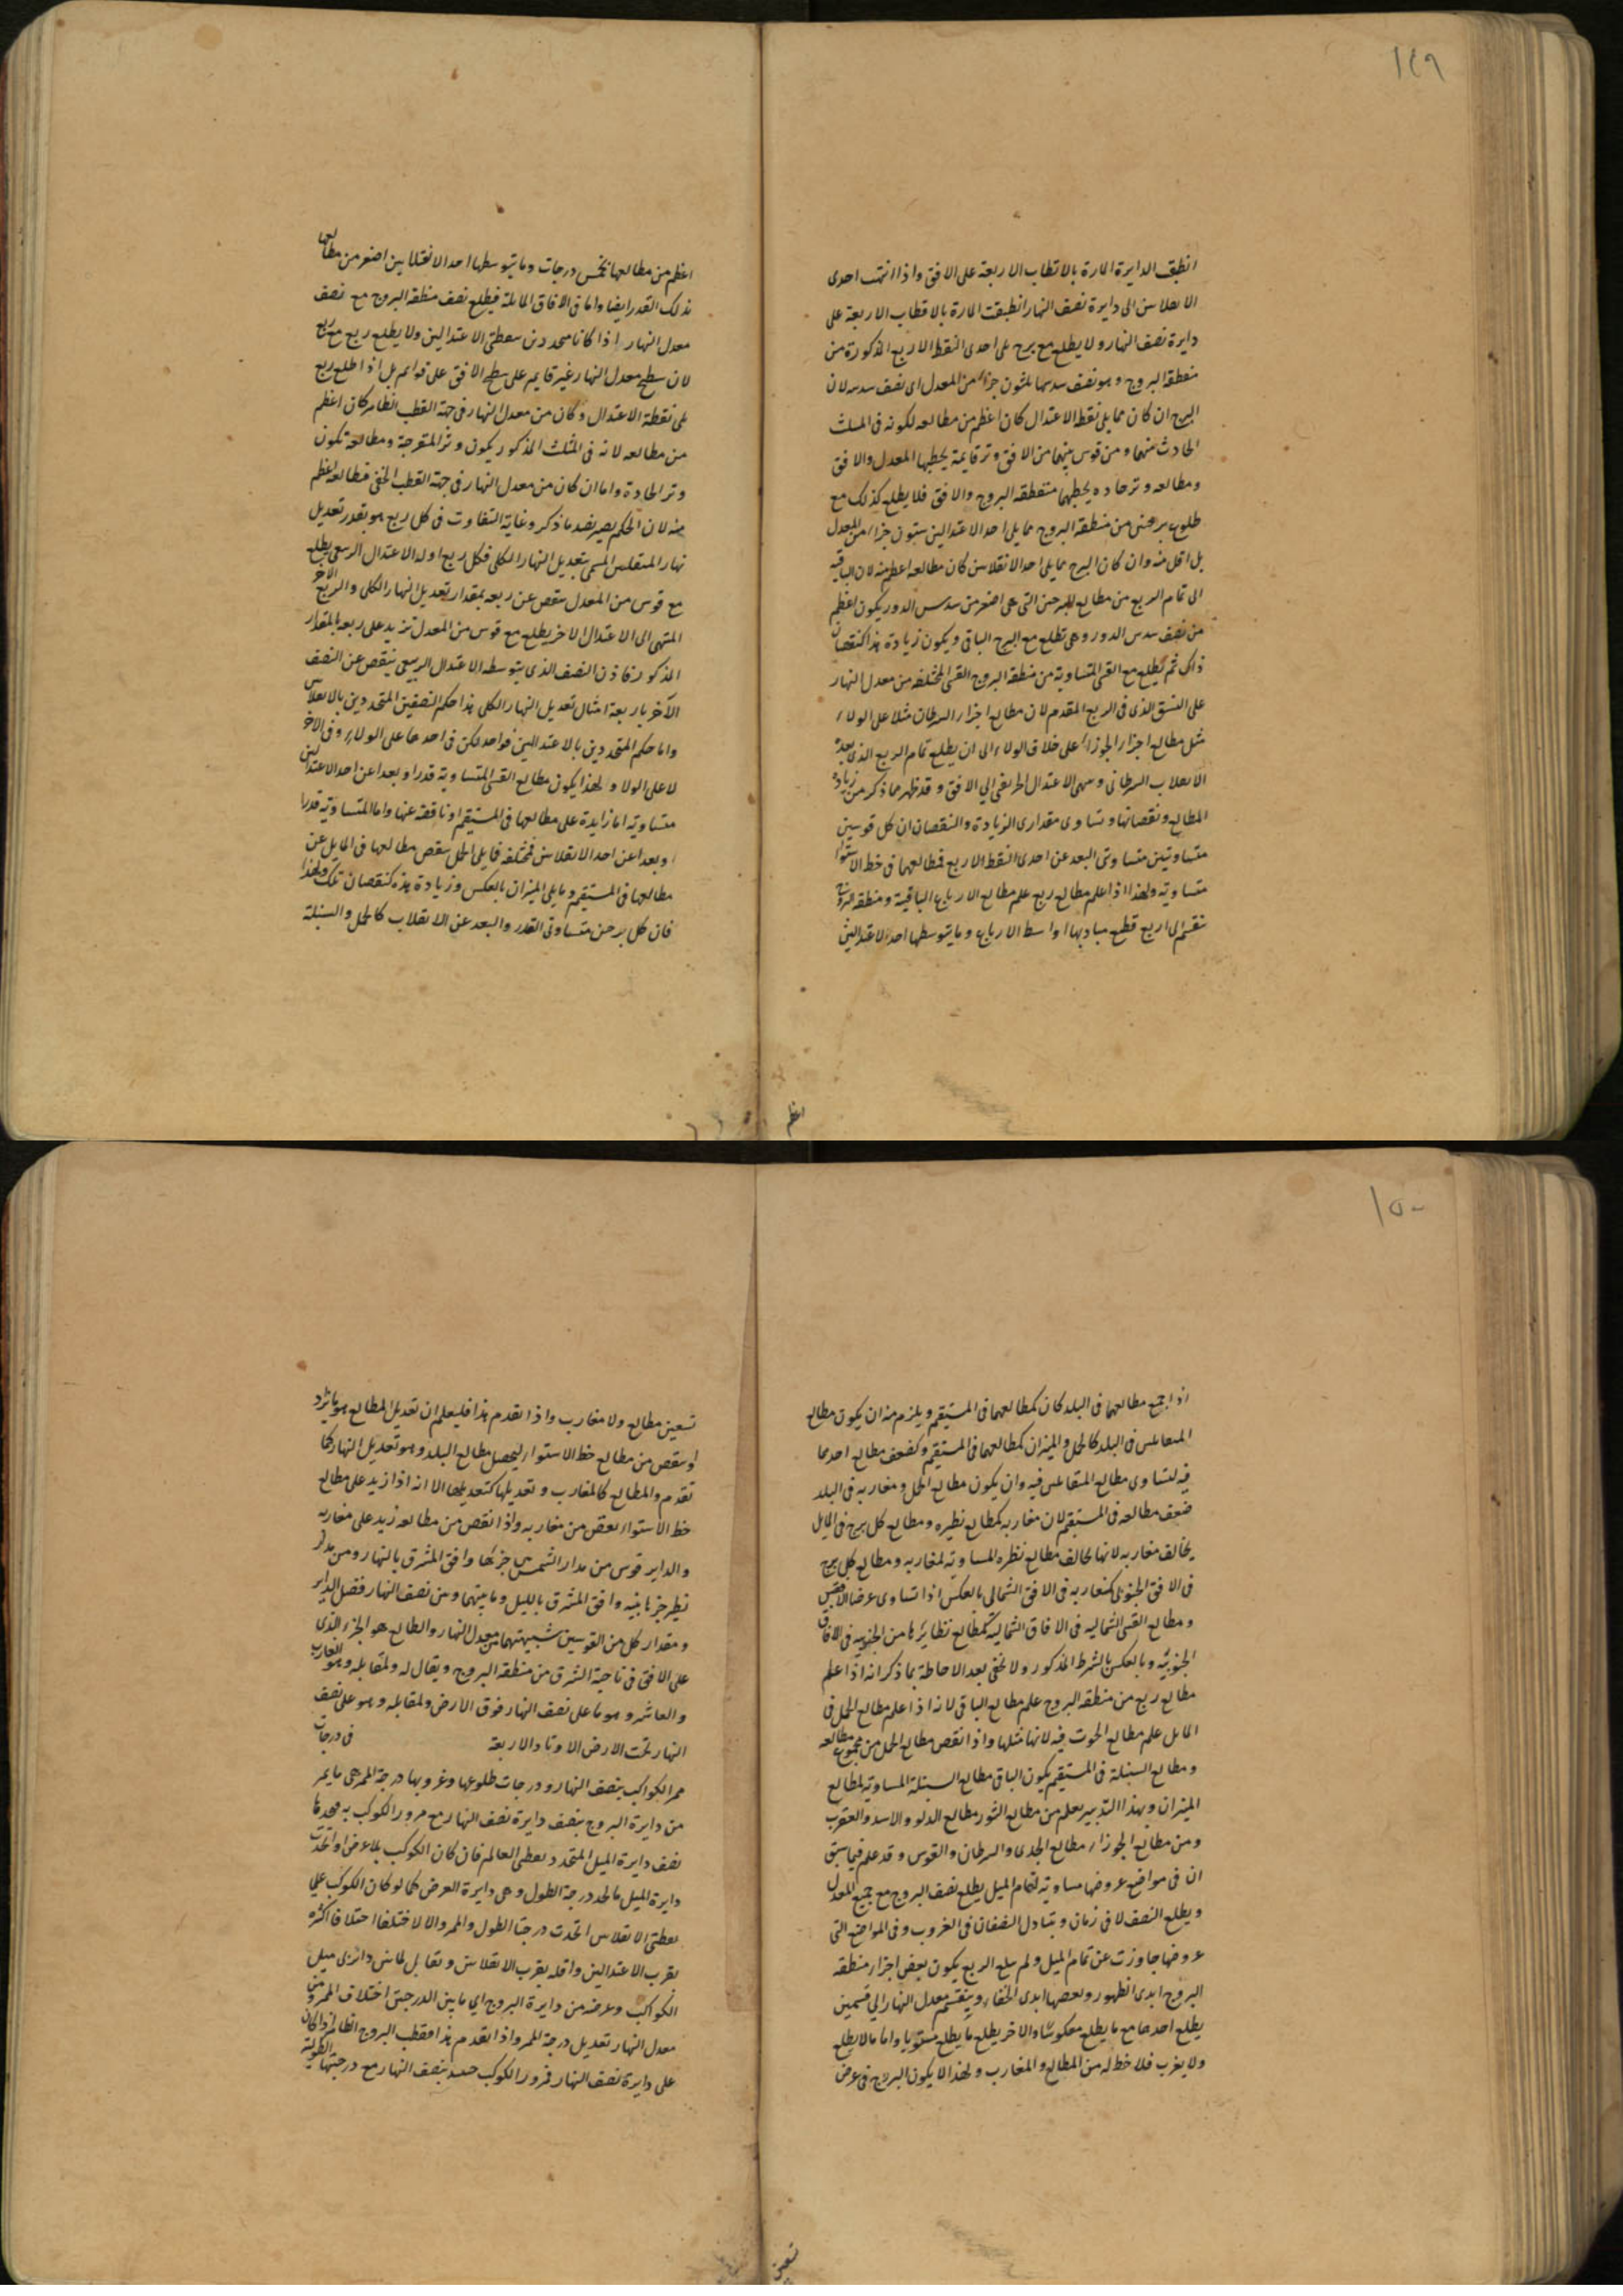 ١٤٩
انطبق الدايرة المارة بالاقطاب الاربعة على الافق واذا انتهت احدى
الانقلابين الى دايرة نصف النهار انطبقت المارة بالاقطاب الاربعة على
دايرة نصف النهار ولا يطلع مع برج على احدى النقط الاربع المذكورة من
منطقة البروج وهو نصف سدسها ثلثون جزءا من المعدل اى نصف سدسه لان
البرج ان كان مما يلى نقط الاعتدال كان اعظم من مطالعه لكونه فى المثلث
الحادث منهما ومن قوس بينهما من الافق وتر قايمة يحيط بها المعدل والافق
ومطالعه وتر حاده يحيط بها منطقة البروج والافق فلا يطلع كذلك مع
طلوع برجين من منطقة البروج مما يلى احد الاعتدالين ستون جزءا من المعدل
بل اقل منه وان كان البرج مما يلى احد الانقلابين كان مطالعه اعظم منه لان الباقية
الى تمام الربع من مطالع البرجين التى هى اصغر من سدس الدور يكون اعظم
من نصف سدس الدور وهى تطلع مع البرج الباقى ويكون زيادة هذا كنقصان
ذاك ثم يطلع مع القسى المتساوية من منطقة البروج القسى المختلفة من معدل النهار
على النسق الذى فى الربع المقدم لان مطالع اجزاء السرطان مثلا على الولاء
مثل مطالع اجزاء الجوزاء على خلاف الولاء الى ان يطلع تمام الربع الذى بعد
الانقلاب السرطانى وينتهى الاعتدال الخريفى الى الافق وقد ظهر مما ذكر من زيادة
المطالع ونقصانها وتساوى مقدارى الزيادة والنقصان ان كل قوسين
متساويتين متساوتى البعد عن احدى النقط الاربع فمطالعهما فى خط الاستوا
متساوية ولهذا اذا علم مطالع ربع علم مطالع الارباع الباقية ومنطقة البروج
تنقسم الى اربع قطع مباديها اواسط الارباع وما يتوسطها احد الاعتدالين
اعظم
اعظم من مطالعها بخمس درجات وما يتوسطها احد الانقلابين اصغر من مطالعها
بذلك القدر ايضا واما فى الافاق المايلة فيطلع نصف منطقة البروج مع نصف
معدل النهار اذا كانا متحددين بنقطتى الاعتدالين ولا يطلع ربع مع ربع
لان سطح معدل النهار غير قايم على سطح الافق على قوايم بل اذا طلع ربع
على نقطة الاعتدال وكان من معدل النهار فى جهة القطب الظاهر كان اعظم
من مطالعه لانه فى المثلث المذكور يكون وتر المنفرجة ومطالعه تكون
وتر الحادة واما ان كان من معدل النهار فى جهة القطب الخفى فمطالعه اعظم
منه لان الحكم يصير بضد ما ذكر وغاية التفاوت فى كل ربع هو بقدر تعديل
نهار المنقلبين المسمى بتعديل النهار الكلى فكل ربع اوله الاعتدال الربيعى يطلع
مع قوس من المعدل ينقص عن ربعه بمقدار تعديل النهار الكلى والربع الاخر
المنتهى الى الاعتدال الاخر يطلع مع قوس من المعدل تزيد على ربعه بالمقدار
المذكور فاذن النصف الذى يتوسطه الاعتدال الربيعى ينقص عن النصف
الآخر باربعة امثال تعديل النهار الكلى هذا حكم النصفين المتحددين بالانقلابين
واما حكم المتحددين بالاعتدالين فواحد لكن فى احدهما على الولاء وفى الاخر
لا على الولاء ولهذا يكون مطالع القسى المتساوية قدرا وبعدا عن احد الاعتدالين
متساوية اما زايدة على مطالعها فى المستقيم او ناقصة عنها واما المتساوية قدرا
وبعدا عن احد الانقلابين فمختلفة فما يلى الحمل ينقص مطالعها فى المايل عن
مطالعها فى المستقيم وما يلى الميزان بالعكس وزيادة هذه كنقصان تلك ولهذا
فان كل برجين متساوى القدر والبعد عن الانقلاب كالحمل والسنبلة
١٥٠
اذا جمع مطالعهما فى البلد كان كمطالعهما فى المستقيم ويلزم منه ان يكون مطالع
المتقابلين فى البلد كالحمل والميزان كمطالعهما فى المستقيم وكضعف مطالع احدهما
فيه لتساوى مطالع المتقابلين فيه وان يكون مطالع الحمل ومغاربه فى البلد
ضعف مطالعه فى المستقيم لان مغاربه كمطالع نظيره ومطالع كل برج فى المايل
يخالف مغاربه لانها يخالف مطالع نظيره المساوية لمغاربه ومطالع كل برج
فى الافق الجنوبى كمغاربه فى الافق الشمالى بالعكس اذا تساوى عرضا الافقين
ومطالع القسى الشماليه فى الافاق الشمالية كمطالع نظائرها من الجنوبيه فى الافاق
الجنوبيّه وبالعكس بالشرط المذكور ولا يخفى بعد الاحاطة بما ذكر انه اذا علم
مطالع ربع من منطقة البروج علم مطالع الباقى لانه اذا علم مطالع الحمل فى
المايل علم مطالع الحوت فيه لانها مثلها واذا نقص مطالع الحمل من مجموع مطالعه
ومطالع السنبلة فى المستقيم يكون الباقى مطالع السنبلة المساوية لمطالع
الميزان وبهذا التدبير يعلم من مطالع الثور مطالع الدلو والاسد والعقرب
ومن مطالع الجوزاء مطالع الجدى والسرطان والقوس وقد علم فيما سبق
ان فى مواضع عروضها مساوية لتمام الميل يطلع نصف البروج مع جميع المعدل
ويطلع النصف لا فى زمان ويتبادل النصفان فى الغروب وفى المواضع التى
عروضها جاوزت عن تمام الميل ولم يبلغ الربع يكون بعض اجزاء منطقة
البروج ابدى الظهور وبعضها ابدى الخفاء وينقسم معدل النهار الى قسمين
يطلع احدهما مع ما يطلع معكوسًا والاخر يطلع مع ما يطلع مستويا واما ما لا يطلع
ولا يغرب فلا حظ له من المطالع والمغارب ولهذا لا يكون البروج فى عرض
تسعين
تسعين مطالع ولا مغارب واذا تقدم هذا فليعلم ان تعديل المطالع هو ما يزد
او ينقص من مطالع خط الاستواء ليحصل مطالع البلد وهو تعديل النهار كما
تقدم والمطالع كالمغارب وتعديلها كتعديلها الا انه اذا زيد على مطالع
خط الاستواء نقص من مغاربه واذا نقص من مطالعه زيد على مغاربه
والداير قوس من مدار الشمس بين جزئها وافق المشرق بالنهار ومن مدار
نظير جزءها بينه وافق المشرق بالليل وما بينهما ومن نصف النهار فضل الداير
ومقدار كل من القوسين شبيهتهما من معدل النهار والطالع هو الجزء الذى
على الافق فى ناحية الشرق من منطقة البروج ويقال له ولمقابله وهو الغارب
والعاشر وهو ما على نصف النهار فوق الارض ولمقابله وهو على نصف
النهار تحت الارض الاوتاد الاربعة فى درجات
ممر الكواكب بنصف النهار ودرجات طلوعها وغروبها درجة الممر هى ما يمر
من دايرة البروج بنصف دايرة نصف النهار مع مرور الكوكب به فى
نصف دايرة الميل المتحدد بقطبى العالم فان كان الكوكب بلا عرض او اتحدت
دايرة الميل مالحد درجة الطول وهى دايرة العرض كما لو كان الكوكب على
نقطتى الانقلابين اتحدت درجتا الطول والممر والا لاختلفا اختلافا اكثره
بقرب الاعتدالين واقله بقرب الانقلابين وتقابل دائرتى ميل
الكوكب وعرضه من دايرة البروج اى ما بين الدرجتين اختلاف الممر ومن
معدل النهار تعديل درجة الممر واذا تقدم هذا فقطب البروج الظاهر اذا كان
على دايرة نصف النهار فمرور الكوكب بنصف النهار مع درجتها الطولية